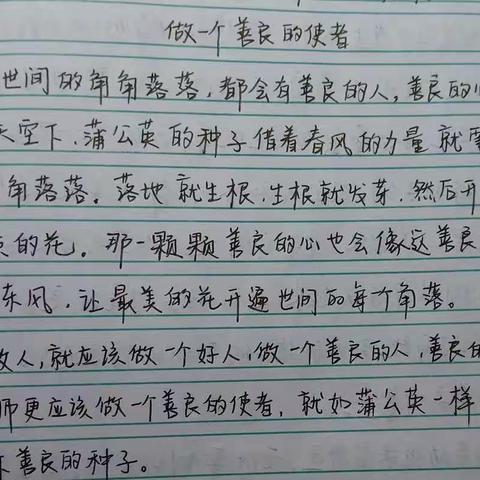 做一个善良的使者
世间的角角落落，都会有善良的人，善良的心
天空下，蒲公英的种子借着春风的力量就
角落落。落地就生根，生根就发芽，然后开
的花。那一颗颗善良的心也会像这善良
东风，让最美的花开遍世间的每个角落。
做人，就应该做一个好人，做一个善良的人，善良的
师更应该做一个善良的使者，就如蒲公英一样
善良的种子。